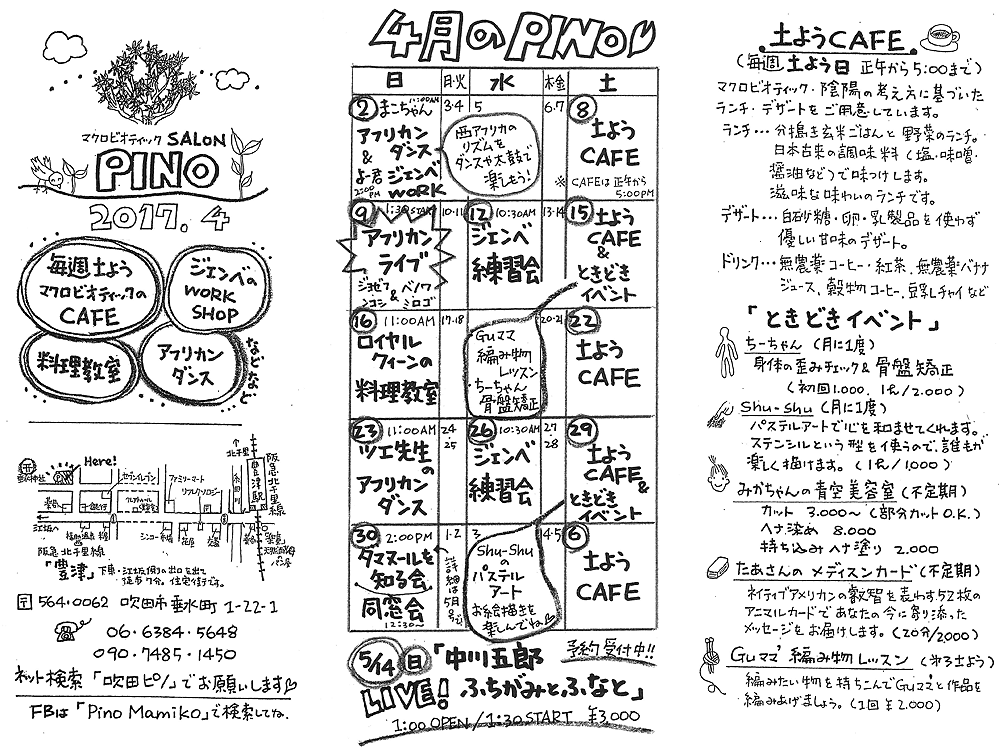 マクロビオティック SALON
PINO
2017. 4
毎週土よう
マクロビオティックの
CAFE
ジェンベの
WORK
SHOP
料理教室
アフリカン
ダンス
などなど
Here!
セブンイレブン
ファミリーマート
北千里
豊津駅
阪急北千里線
江坂へ
阪急北千里線
「豊津」下車・江坂側の出口を出て
徒歩7分。住宅街です。
〒564・0062 吹田市垂水町 1-22-1
06・6384・5648
090・7485・1450
ネット検索「吹田ピノ」でお願いします
FBは「Pino Mamiko」で検索してね.
4月のPINO
日 月・火 水 木・金 土
2 まこちゃん 11:00AM
アフリカン
&
ダンス
よー君 ジェンベ
2:00PM WORK
3・4
5
西アフリカの
リズムを
ダンスや太鼓で
楽しもう!
6・7
8
土よう
CAFE
※CAFEは正午から
5:00PM
9 1:30START
アフリカン
ライブ
ジョゼフ & ベノワ
ンコシ ミロゴ
10・11
12 10:30AM
ジェンベ
練習会
13・14
15 土よう
CAFE
&
ときどき
イベント
16 11:00AM
ロイヤル
クィーンの
料理教室
17・18
Guママ
編み物
レッスン
・ちーちゃん
骨盤矯正
20・21
22
土よう
CAFE
23 11:00AM
ツエ先生
の
アフリカン
ダンス
24
25
26 10:30AM
ジェンベ
練習会
27
28
29
土よう
CAFE
&
ときどき
イベント
30 2:00PM
タマヌールを
知る会
同窓会
12:30〜
1・2
詳細は5月号で
3
Shu-Shu
の
パステル
アート
お絵描きを
楽しんでね
4・5
6
土よう
CAFE
5/14 日 「中川五郎 予約受付中!!
LIVE! ふちがみとふなと」
1:00 OPEN / 1:30 START ¥3,000
土ようCAFE
(毎週 土よう日 正午から5:00まで)
マクロビオティック・陰陽の考え方に基づいた
ランチ・デザートをご用意しています。
ランチ… 分搗き玄米ごはんと野菜のランチ。
日本古来の調味料(塩・味噌・
醤油など)で味つけします。
滋味な味わいのランチです。
デザート… 白砂糖・卵・乳製品を使わず
優しい甘味のデザート。
ドリンク… 無農薬コーヒー・紅茶、無農薬バナナ
ジュース、穀物コーヒー、豆乳チャイなど
「ときどきイベント」
ちーちゃん (月に1度)
身体の歪みチェック & 骨盤矯正
(初回1.000. 1h/2.000)
Shu-shu (月に1度)
パステルアートで心を和ませてくれます。
ステンシルという型を使うので、誰もが
楽しく描けます。(1h/1,000)
みかちゃんの青空美容室(不定期)
カット 3.000〜(部分カットO.K.)
ヘナ染め 8.000
持ち込みヘナ塗り 2.000
たあさんのメディスンカード(不定期)
ネイティブアメリカンの叡智を表わす52枚の
アニマルカードであなたの今に寄り添った
メッセージをお届けします。(20分/2000)
Guママ 編み物レッスン (第3土よう)
編みたい物を持ちこんでGuママと作品を
編みあげましょう。(1回 ¥2.000)